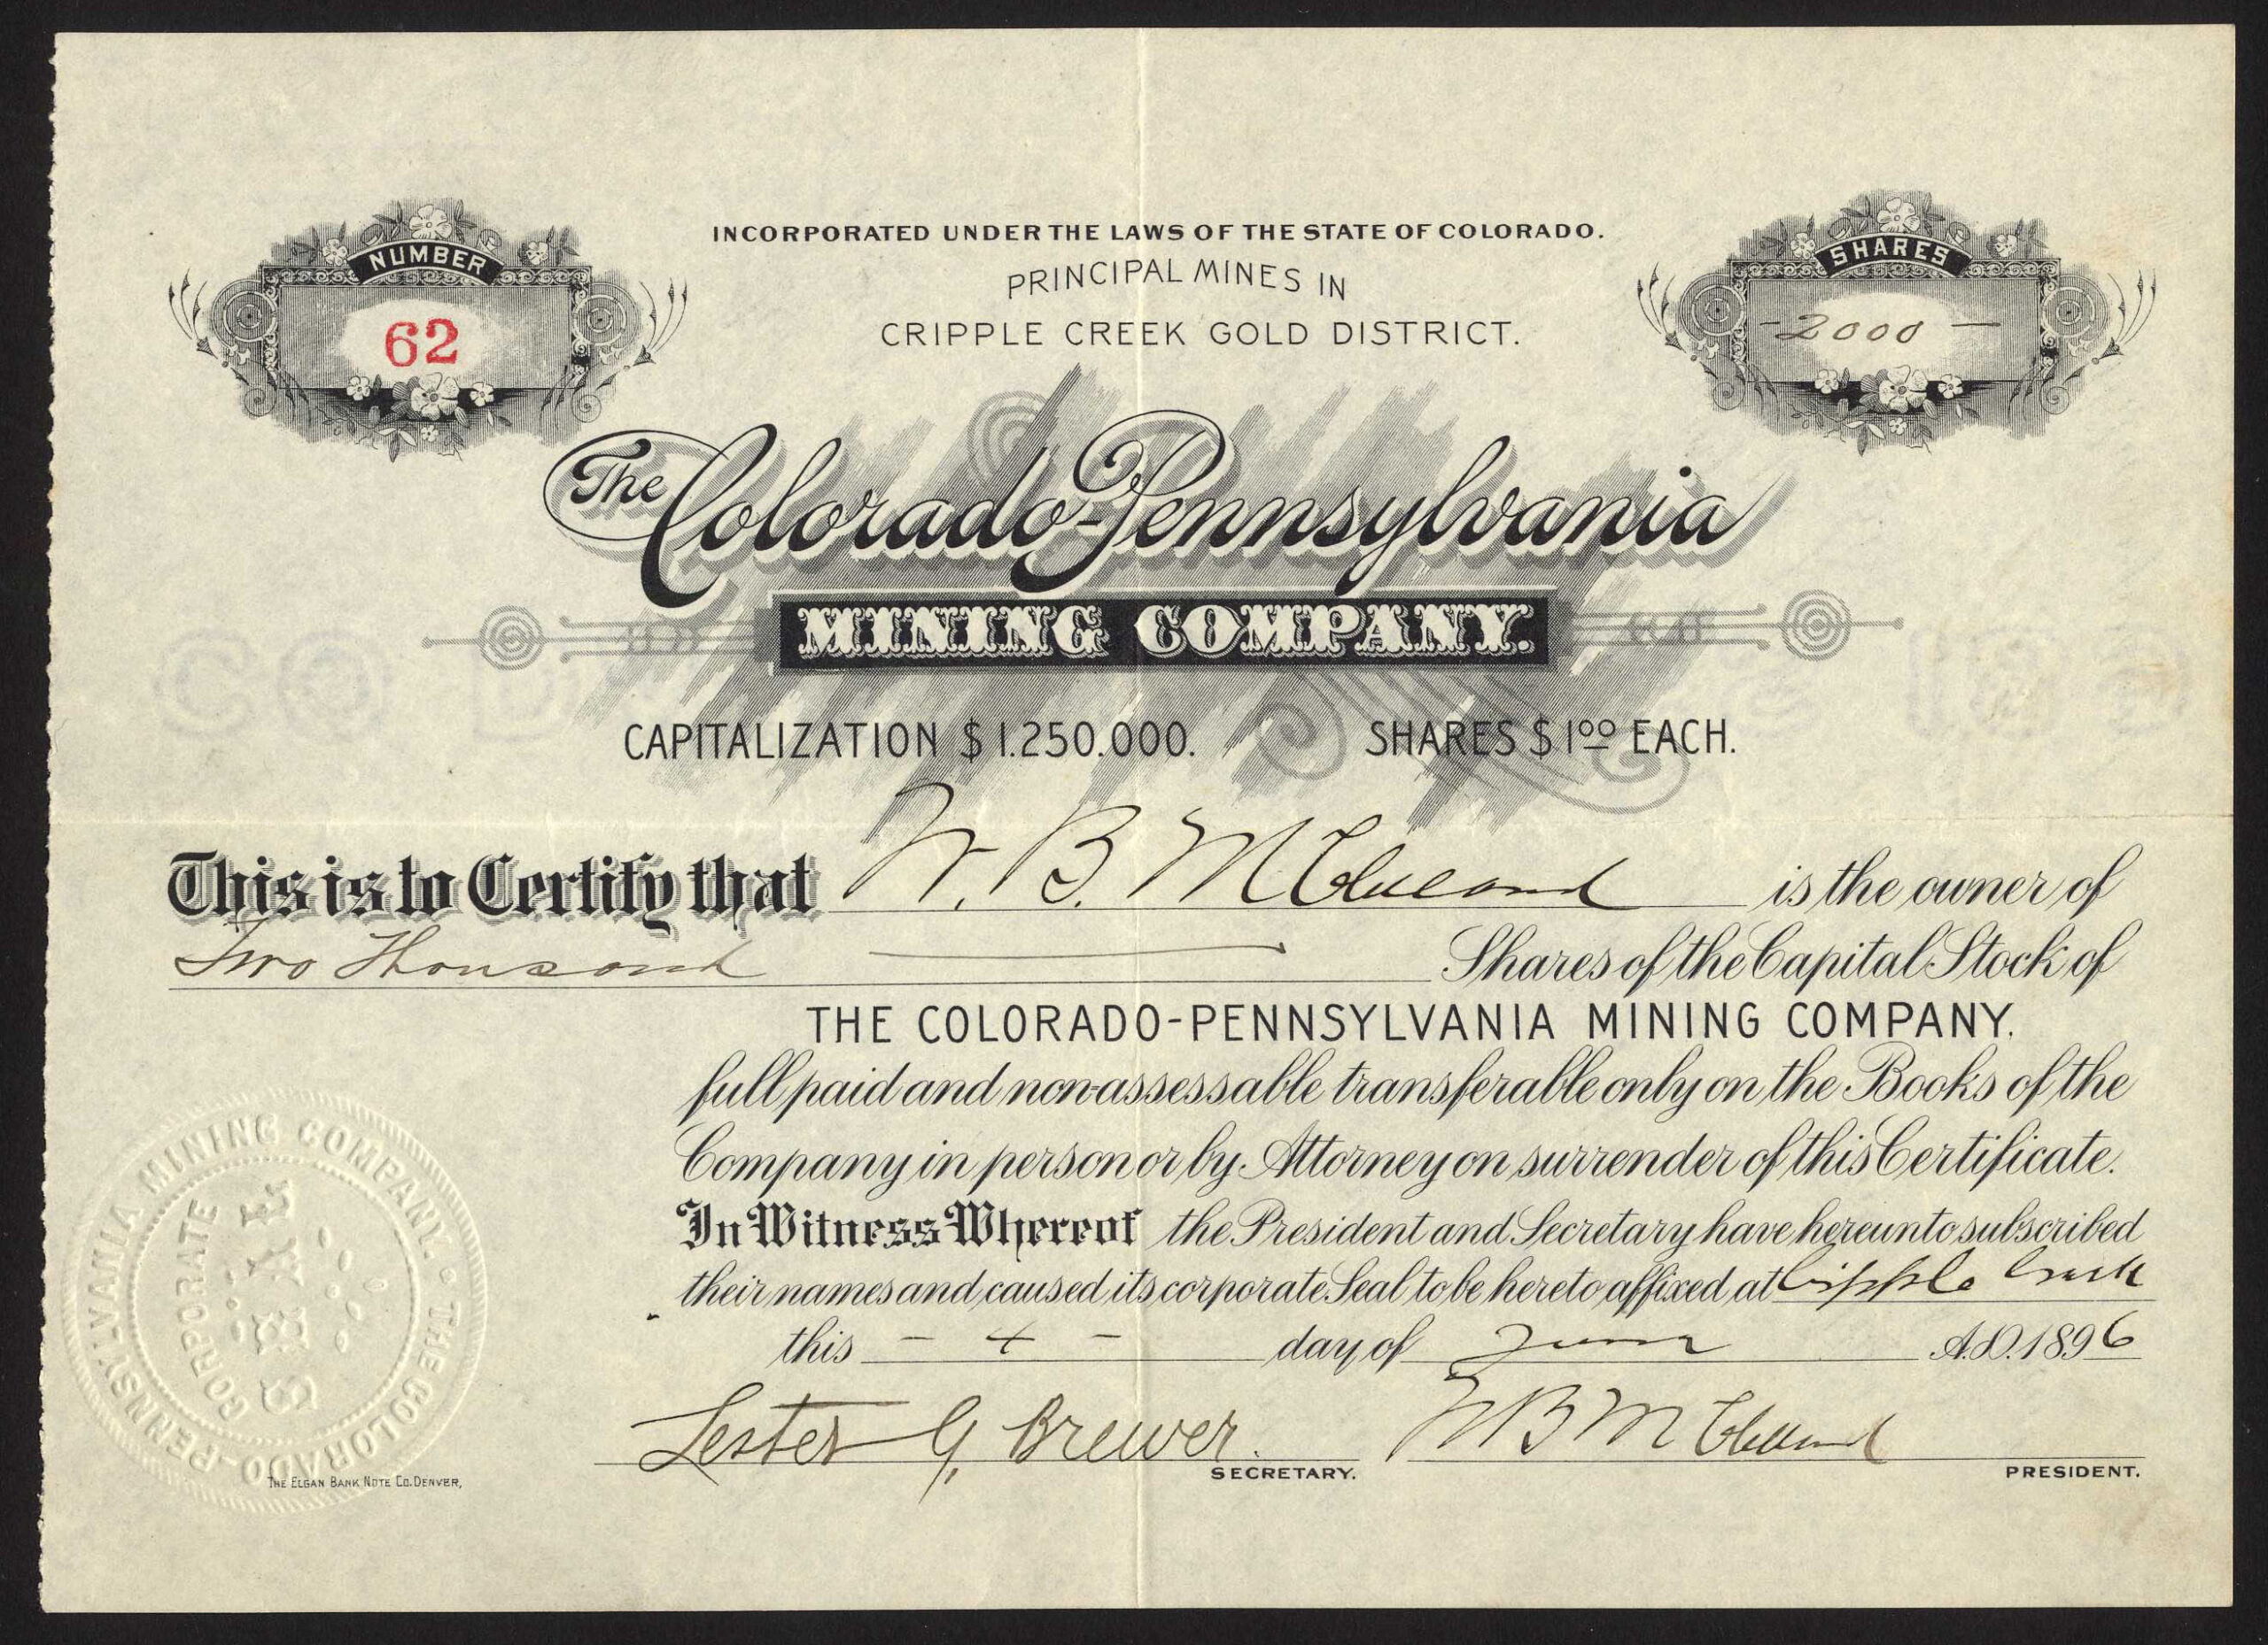 NUMBER
62
INCORPORATED UNDER THE LAWS OF THE STATE OF COLORADO.
PRINCIPAL MINES IN
CRIPPLE CREEK GOLD DISTRICT.
SHARES
-2000-
The Colorado-Pennsylvania
MINING COMPANY.
CAPITALIZATION $1.250.000. SHARES $1.00 EACH.
This is to Certify that W. B. McClelland is the owner of
Two Thousand Shares of the Capital Stock of
THE COLORADO-PENNSYLVANIA MINING COMPANY.
full paid and non-assessable transferable only on the Books of the
Company in person or by Attorney on surrender of this Certificate.
In Witness Whereof the President and Secretary have hereunto subscribed
their names and caused its corporate Seal to be hereto affixed at Cripple Creek
this - 4 - day of June A.D. 1896
Lester G. Brewer. W B McClelland
SECRETARY. PRESIDENT.
THE COLORADO-PENNSYLVANIA MINING COMPANY.
CORPORATE
SEAL
THE ELGAN BANK NOTE CO. DENVER,